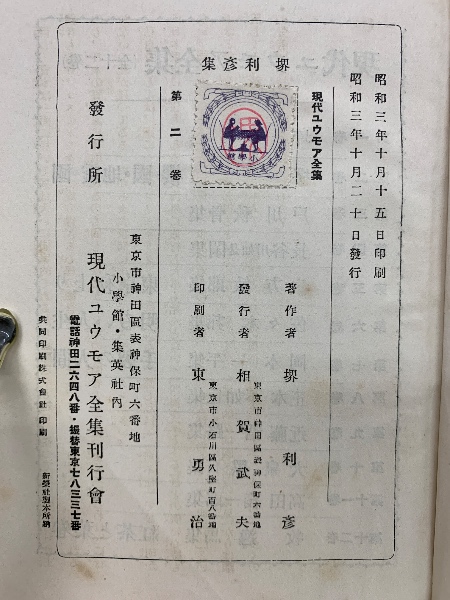 昭和三年十月十五日印刷
昭和三年十月二十日發行
現代ユウモア全集
堺利彦集
小學館
第二卷
著作者 堺利彦
東京市神田區表神保町六番地
發行者 相賀武夫
東京市小石川區久堅町百八番地
印刷者 東勇治
東京市神田區表神保町六番地
小學館・集英社内
發行所 現代ユウモア全集刊行會
電話神田二六四八番・振替東京七八三三七番
共同印刷株式會社印刷